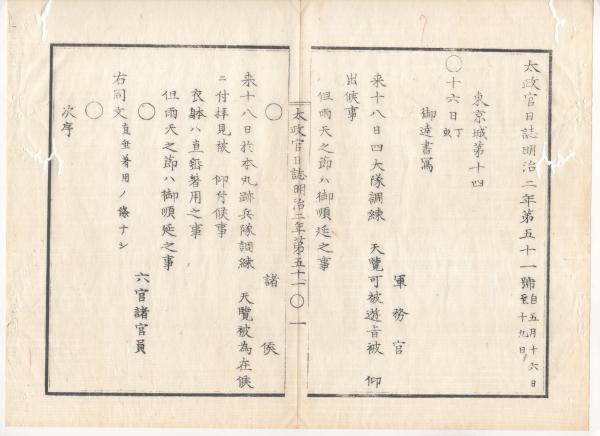 太政官日誌明治二年第五十一號 自五月十六日 至十九日
東京城第十四
○十六日 丁亥
御達書寫
軍務官
来十八日四大隊調練 天覽可被遊旨被 仰
出候事
但雨天之節ハ御順延之事
太政官日誌明治二年第五十一 ○ 一
○
諸侯
来十八日於本丸跡兵隊調練 天覽被為在候
ニ付拝見被 仰付候事
衣躰ハ直垂著用之事
但雨天之節ハ御順延之事
○
六官諸官員
右同文 直垂著用ノ條ナシ
○
次序